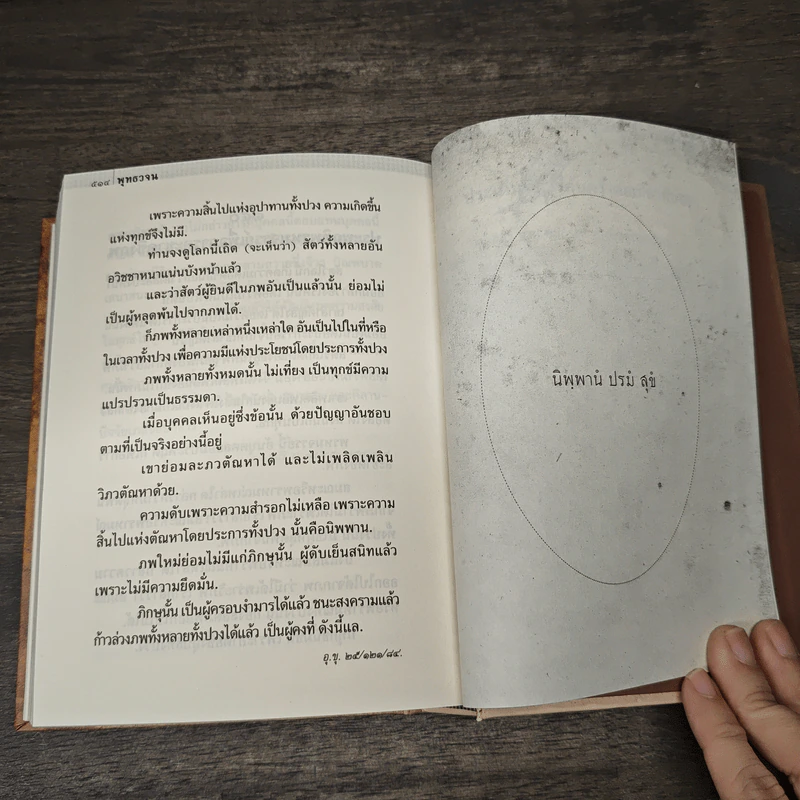 ๕๑๔ | พุทธวจน
เพราะความสิ้นไปแห่งอุปาทานทั้งปวง ความเกิดขึ้น
แห่งทุกข์จึงไม่มี.
ท่านจงดูโลกนี้เถิด (จะเห็นว่า) สัตว์ทั้งหลายอัน
อวิชชาหนาแน่นบังหน้าแล้ว
และว่าสัตว์ผู้ยินดีในภพอันเป็นแล้วนั้น ย่อมไม่
เป็นผู้หลุดพ้นไปจากภพได้.
ก็ภพทั้งหลายเหล่าหนึ่งเหล่าใด อันเป็นไปในที่หรือ
ในเวลาทั้งปวง เพื่อความมีแห่งประโยชน์โดยประการทั้งปวง
ภพทั้งหลายทั้งหมดนั้น ไม่เที่ยง เป็นทุกข์มีความ
แปรปรวนเป็นธรรมดา.
เมื่อบุคคลเห็นอยู่ซึ่งข้อนั้น ด้วยปัญญาอันชอบ
ตามที่เป็นจริงอย่างนี้อยู่
เขาย่อมละภวตัณหาได้ และไม่เพลิดเพลิน
วิภวตัณหาด้วย.
ความดับเพราะความสำรอกไม่เหลือ เพราะความ
สิ้นไปแห่งตัณหาโดยประการทั้งปวง นั้นคือนิพพาน.
ภพใหม่ย่อมไม่มีแก่ภิกษุนั้น ผู้ดับเย็นสนิทแล้ว
เพราะไม่มีความยึดมั่น.
ภิกษุนั้น เป็นผู้ครอบงำมารได้แล้ว ชนะสงครามแล้ว
ก้าวล่วงภพทั้งหลายทั้งปวงได้แล้ว เป็นผู้คงที่ ดังนี้แล.
อุ.ขุ. ๒๕/๑๒๑/๘๔.
นิพฺพานํ ปรมํ สุขํ